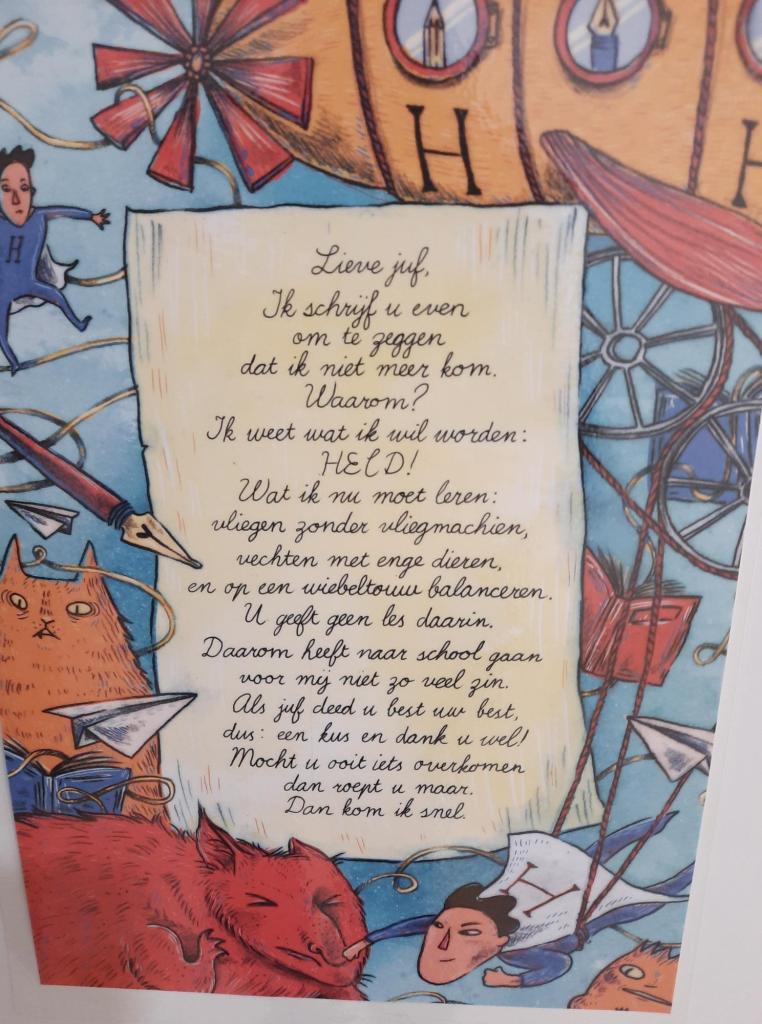 H
H
H
Lieve juf,
Ik schrijf u even
om te zeggen
dat ik niet meer kom.
Waarom?
Ik weet wat ik wil worden:
HELD!
Wat ik nu moet leren:
vliegen zonder vliegmachien,
vechten met enge dieren,
en op een wiebeltouw balanceren.
U geeft geen les daarin.
Daarom heeft naar school gaan
voor mij niet zo veel zin.
Als juf deed u best uw best,
dus: een kus en dank u wel!
Mocht u ooit iets overkomen
dan roept u maar.
Dan kom ik snel.
H